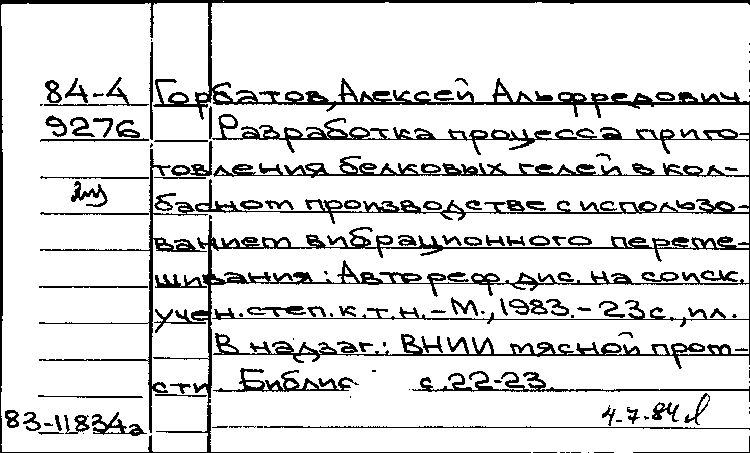 84-4 Горбатов, Алексей Альфредович
9276 Разработка процесса приго-
товления белковых гелей в кол-
2м
басном производстве с использо-
ванием вибрационного переме-
шивания: Автореф. дис. на соиск.
учен. степ. к.т.н. - М., 1983. - 23 с., ил.
В надзаг.: ВНИИ мясной пром-
сти Библиогр с. 22-23.
83-11834а 4-7-84